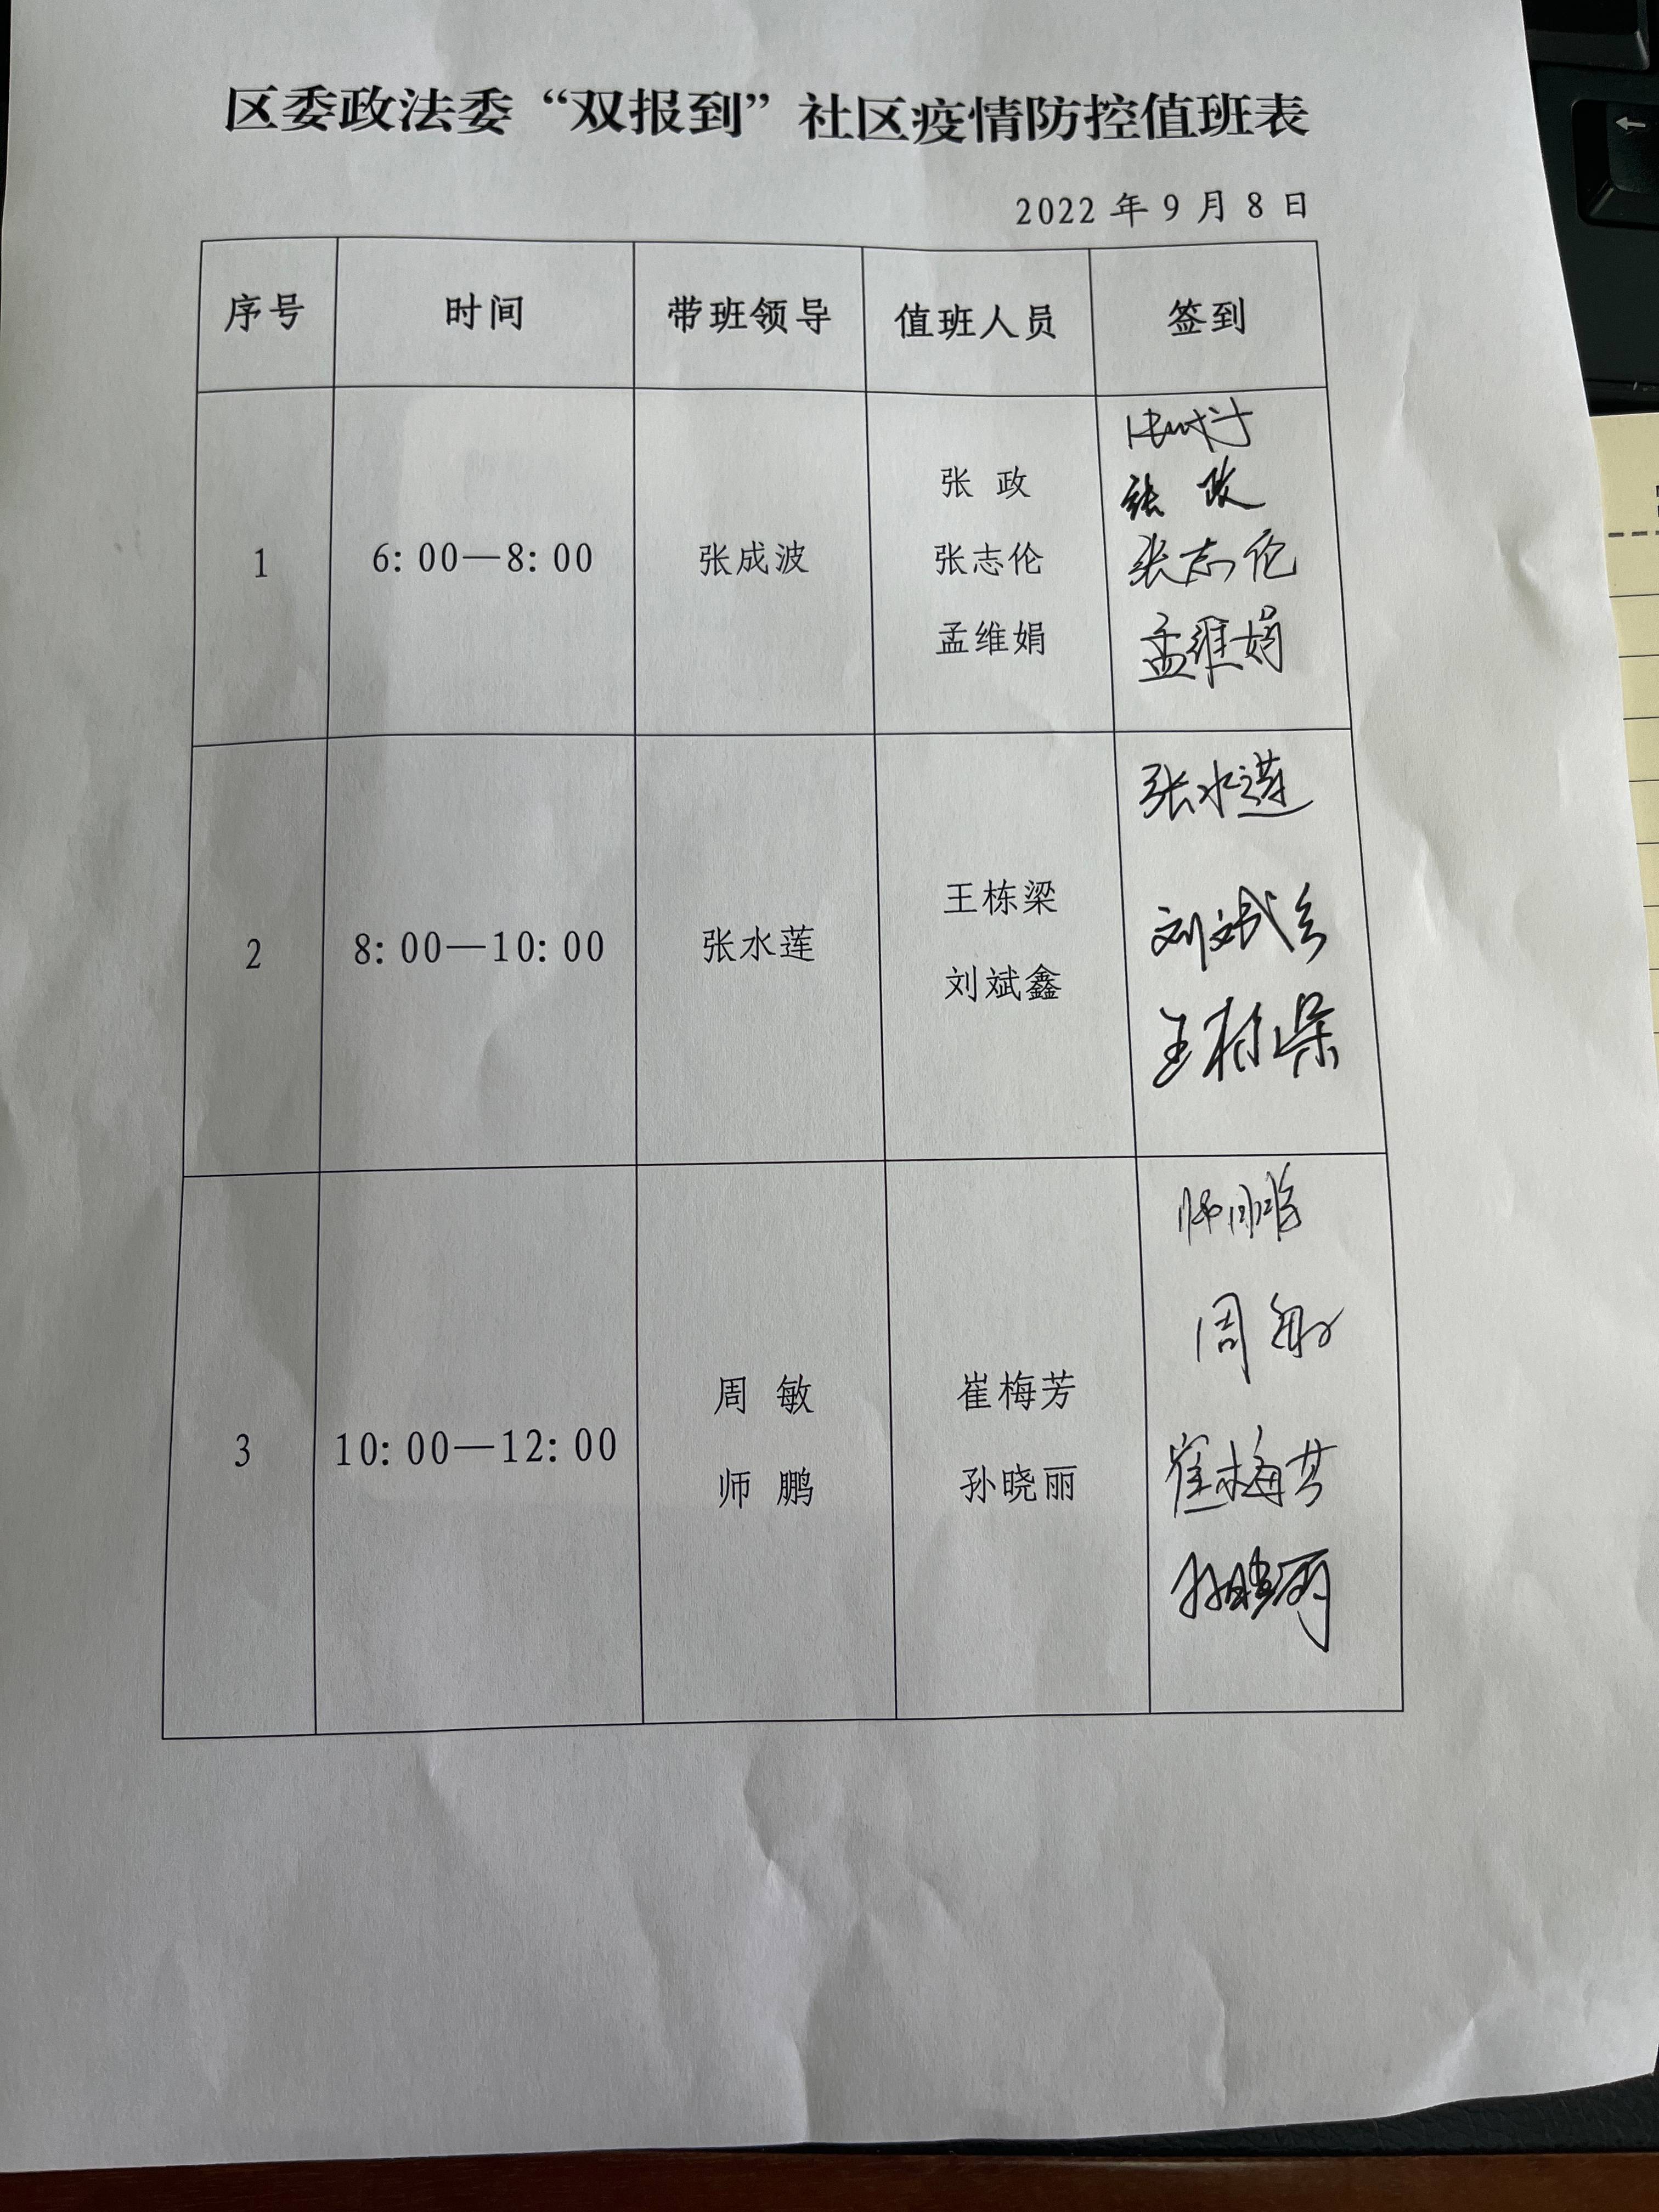 区委政法委“双报到”社区疫情防控值班表
2022年9月8日
序号 时间 带班领导 值班人员 签到
1 6:00—8:00 张成波
张 政
张志伦
孟维娟
张政
张志伦
孟维娟
2 8:00—10:00 张水莲
王栋梁
刘斌鑫
张水莲
刘斌鑫
王栋梁
3 10:00—12:00
周 敏
师 鹏
崔梅芳
孙晓丽
师鹏
周敏
崔梅芳
孙晓丽